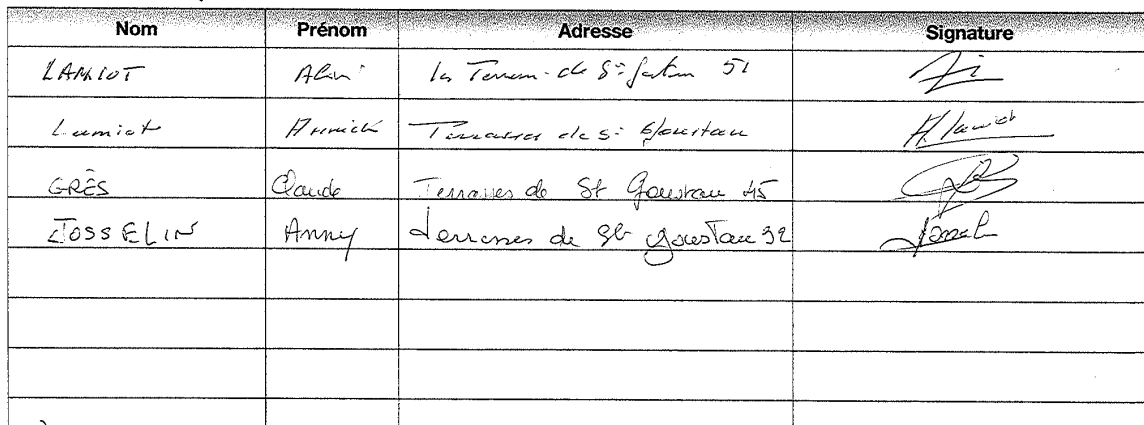 Nom Prénom Adresse Signature
LAMIOT Alain les Terrasses de St Goustan 51
Lamiot Annick Terrasses de St Goustan A. Lamiot
GRÈS Claude Terrasses de St Goustan 45
JOSSELIN Anny Terrasses de St Goustan 32